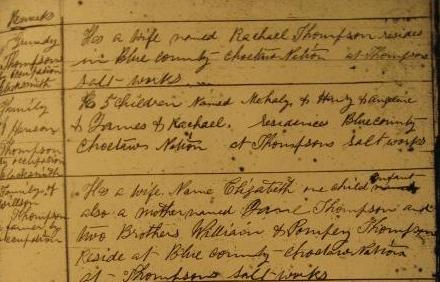 Remarks
Grundy
Thompson
by occupation
Blacksmith
Has a wife named Rachael Thompson resides
in Blue county Choctaw Nation at Thompsons
salt-works
Family
Henson
Thompson
by occupation
Blacksmith
5 Children Named Mehaly, & Henry & angeline
& James & Rachael. residence Blue county
Choctaws Nation at Thompsons salt works
Family of
Thompson
a farmer by
occupation
Has a wife. Name Elizabeth one child Infant
also a mother named Thompson and
two Brothers William & Pompey Thompson
Reside at Blue county Choctaw Nation
at Thompsons salt-works